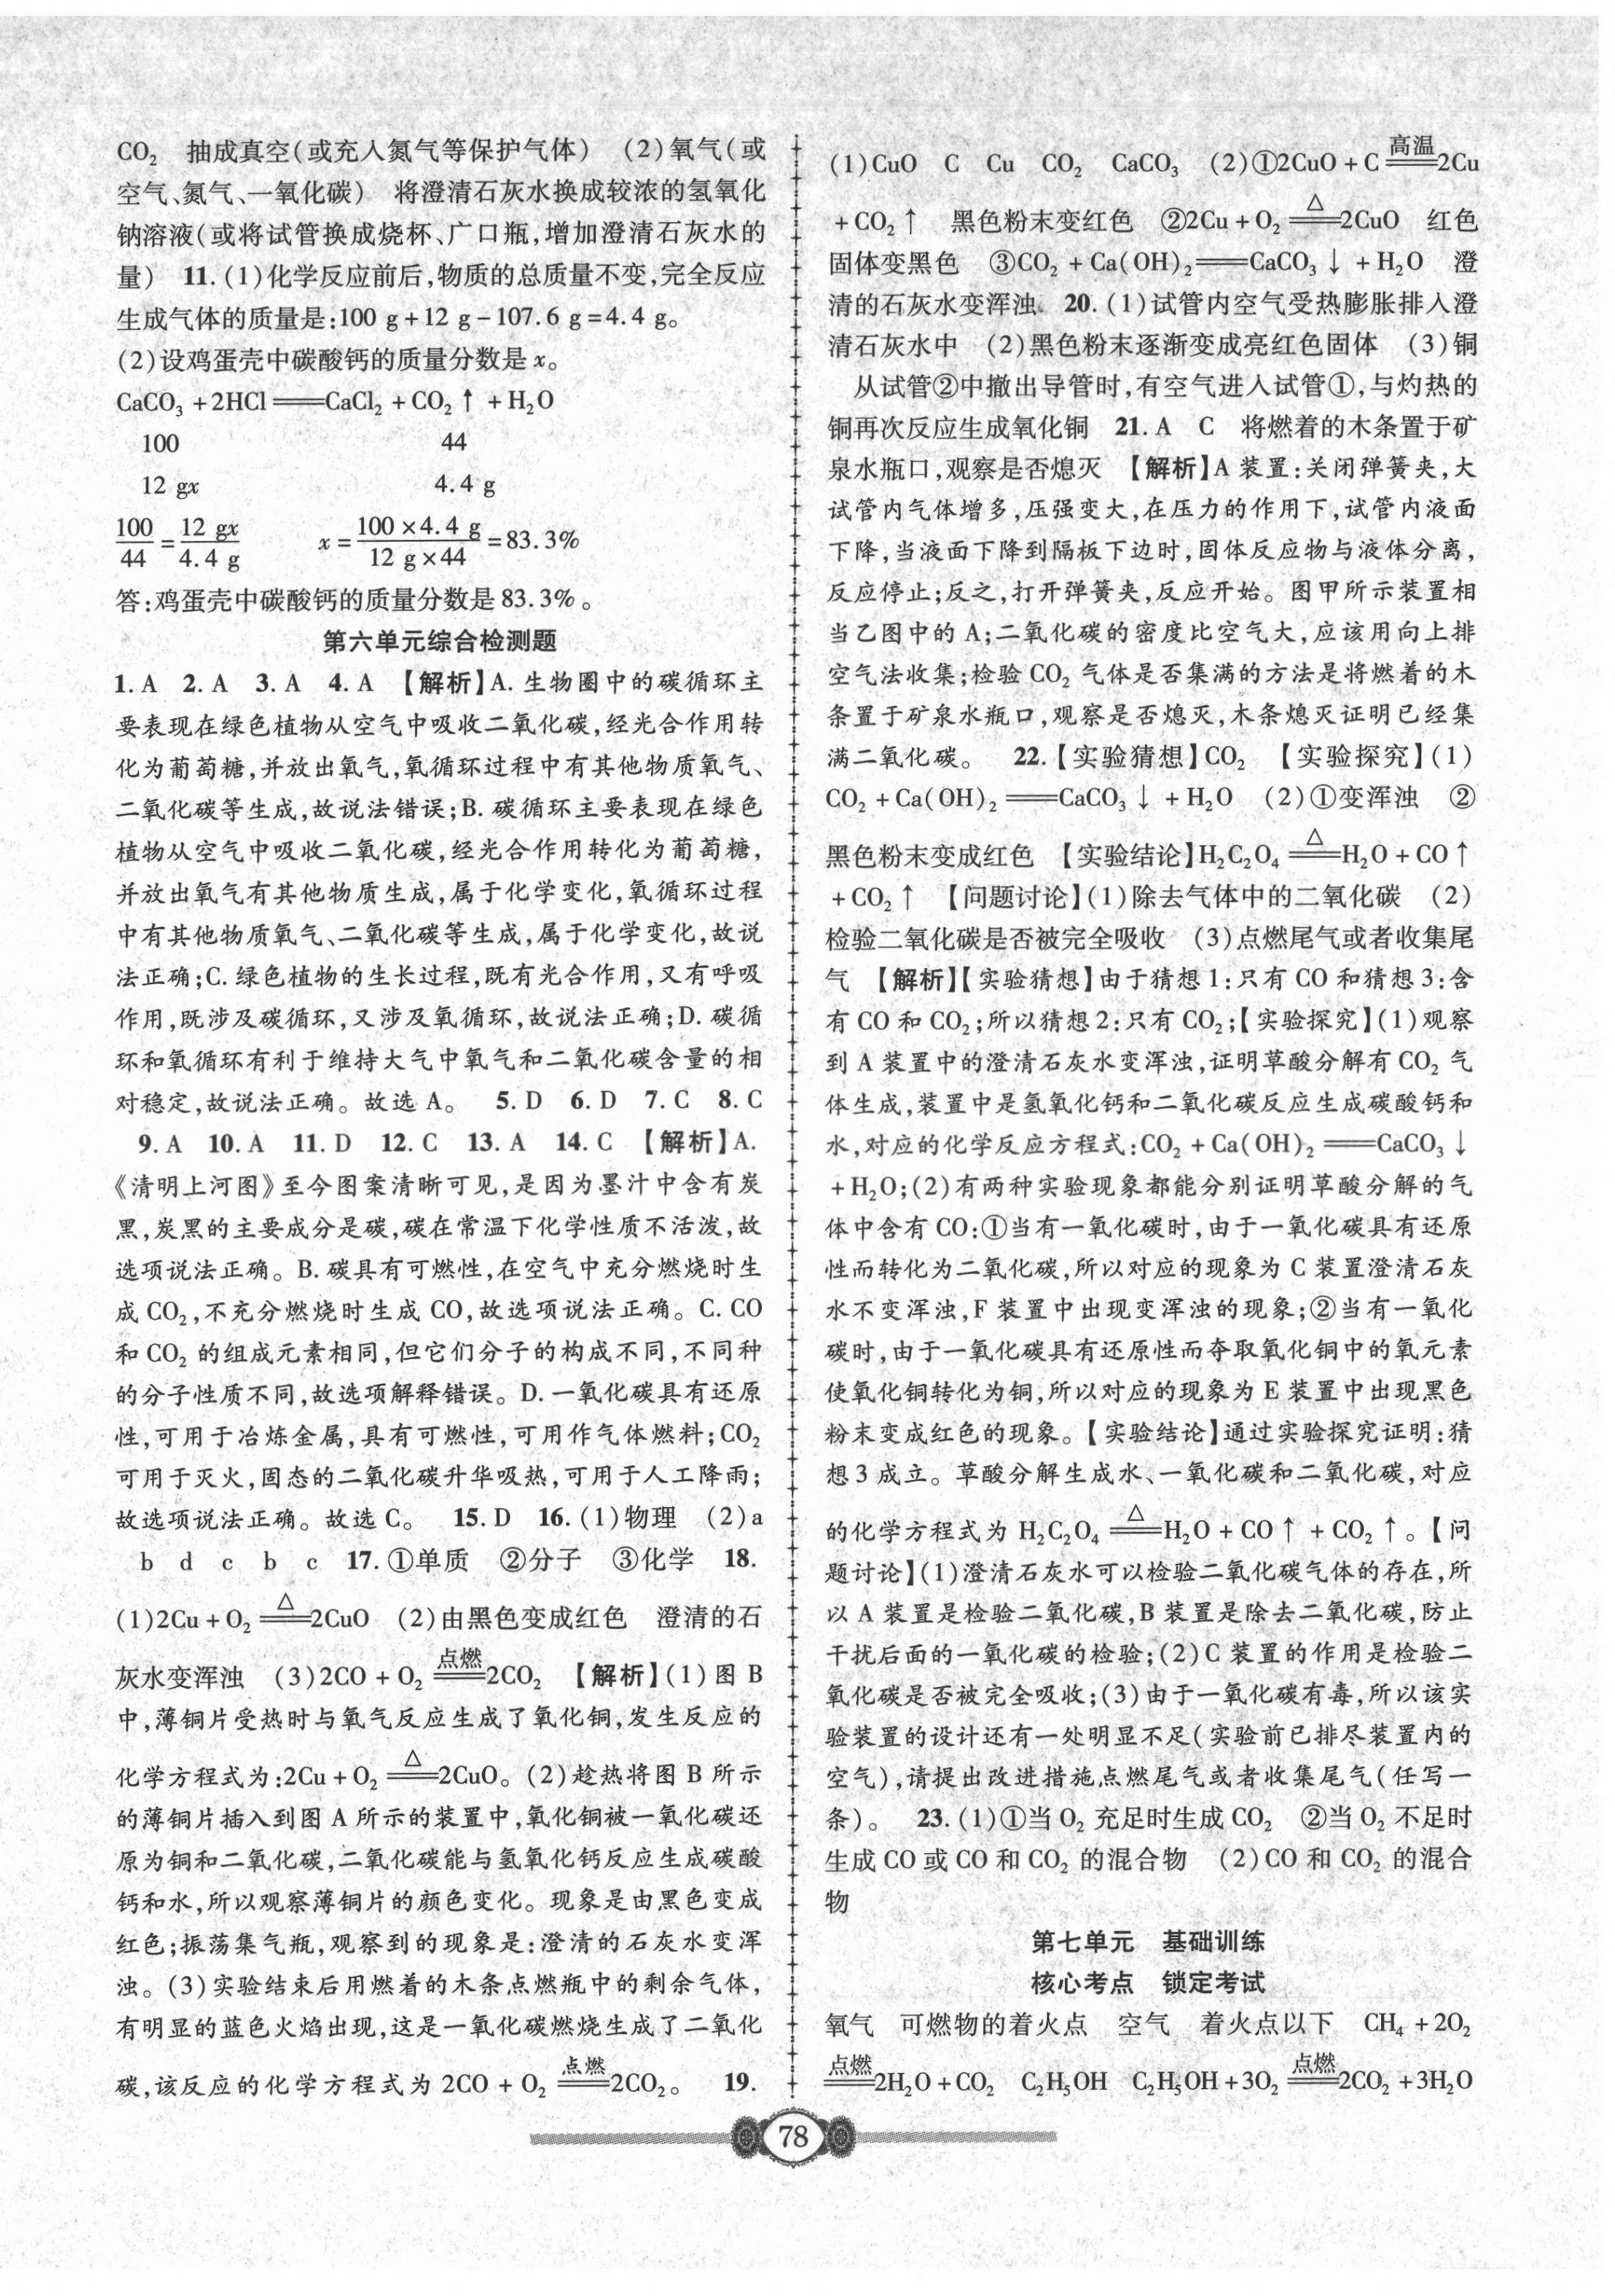 CO₂　抽成真空(或充入氮气等保护气体)　(2)氧气(或
空气、氮气、一氧化碳)　将澄清石灰水换成较浓的氢氧化
钠溶液(或将试管换成烧杯、广口瓶,增加澄清石灰水的
量)　11.(1)化学反应前后,物质的总质量不变,完全反应
生成气体的质量是:100 g+12 g-107.6 g=4.4 g。
(2)设鸡蛋壳中碳酸钙的质量分数是 x。
CaCO₃+2HCl══CaCl₂+CO₂↑+H₂O
100　44
12 gx　4.4 g
100/44=12 gx/4.4 g　x=(100×4.4 g)/(12 g×44)=83.3%
答:鸡蛋壳中碳酸钙的质量分数是 83.3%。
第六单元综合检测题
1.A　2.A　3.A　4.A　【解析】A.生物圈中的碳循环主
要表现在绿色植物从空气中吸收二氧化碳,经光合作用转
化为葡萄糖,并放出氧气,氧循环过程中有其他物质氧气、
二氧化碳等生成,故说法错误;B.碳循环主要表现在绿色
植物从空气中吸收二氧化碳,经光合作用转化为葡萄糖,
并放出氧气有其他物质生成,属于化学变化,氧循环过程
中有其他物质氧气、二氧化碳等生成,属于化学变化,故说
法正确;C.绿色植物的生长过程,既有光合作用,又有呼吸
作用,既涉及碳循环,又涉及氧循环,故说法正确;D.碳循
环和氧循环有利于维持大气中氧气和二氧化碳含量的相
对稳定,故说法正确。故选 A。　5.D　6.D　7.C　8.C
9.A　10.A　11.D　12.C　13.A　14.C　【解析】A.
《清明上河图》至今图案清晰可见,是因为墨汁中含有炭
黑,炭黑的主要成分是碳,碳在常温下化学性质不活泼,故
选项说法正确。B.碳具有可燃性,在空气中充分燃烧时生
成 CO₂,不充分燃烧时生成 CO,故选项说法正确。C.CO
和 CO₂ 的组成元素相同,但它们分子的构成不同,不同种
的分子性质不同,故选项解释错误。D.一氧化碳具有还原
性,可用于冶炼金属,具有可燃性,可用作气体燃料;CO₂
可用于灭火,固态的二氧化碳升华吸热,可用于人工降雨;
故选项说法正确。故选 C。　15.D　16.(1)物理　(2)a
b　d　c　b　c　17.①单质　②分子　③化学　18.
(1)2Cu+O₂ ══△══ 2CuO　(2)由黑色变成红色　澄清的石
灰水变浑浊　(3)2CO+O₂ ══点燃══ 2CO₂　【解析】(1)图 B
中,薄铜片受热时与氧气反应生成了氧化铜,发生反应的
化学方程式为:2Cu+O₂ ══△══ 2CuO。(2)趁热将图 B 所示
的薄铜片插入到图 A 所示的装置中,氧化铜被一氧化碳还
原为铜和二氧化碳,二氧化碳能与氢氧化钙反应生成碳酸
钙和水,所以观察薄铜片的颜色变化。现象是由黑色变成
红色;振荡集气瓶,观察到的现象是:澄清的石灰水变浑
浊。(3)实验结束后用燃着的木条点燃瓶中的剩余气体,
有明显的蓝色火焰出现,这是一氧化碳燃烧生成了二氧化
碳,该反应的化学方程式为 2CO+O₂ ══点燃══ 2CO₂。　19.
(1)CuO　C　Cu　CO₂　CaCO₃　(2)①2CuO+C ══高温══ 2Cu
+CO₂↑　黑色粉末变红色　②2Cu+O₂ ══△══ 2CuO　红色
固体变黑色　③CO₂+Ca(OH)₂══CaCO₃↓+H₂O　澄
清的石灰水变浑浊　20.(1)试管内空气受热膨胀排入澄
清石灰水中　(2)黑色粉末逐渐变成亮红色固体　(3)铜
从试管②中撤出导管时,有空气进入试管①,与灼热的
铜再次反应生成氧化铜　21.A　C　将燃着的木条置于矿
泉水瓶口,观察是否熄灭　【解析】A 装置:关闭弹簧夹,大
试管内气体增多,压强变大,在压力的作用下,试管内液面
下降,当液面下降到隔板下边时,固体反应物与液体分离,
反应停止;反之,打开弹簧夹,反应开始。图甲所示装置相
当乙图中的 A;二氧化碳的密度比空气大,应该用向上排
空气法收集;检验 CO₂ 气体是否集满的方法是将燃着的木
条置于矿泉水瓶口,观察是否熄灭,木条熄灭证明已经集
满二氧化碳。　22.【实验猜想】CO₂　【实验探究】(1)
CO₂+Ca(OH)₂══CaCO₃↓+H₂O　(2)①变浑浊　②
黑色粉末变成红色　【实验结论】H₂C₂O₄ ══△══ H₂O+CO↑
+CO₂↑　【问题讨论】(1)除去气体中的二氧化碳　(2)
检验二氧化碳是否被完全吸收　(3)点燃尾气或者收集尾
气　【解析】【实验猜想】由于猜想 1:只有 CO 和猜想 3:含
有 CO 和 CO₂;所以猜想 2:只有 CO₂;【实验探究】(1)观察
到 A 装置中的澄清石灰水变浑浊,证明草酸分解有 CO₂ 气
体生成,装置中是氢氧化钙和二氧化碳反应生成碳酸钙和
水,对应的化学反应方程式:CO₂+Ca(OH)₂══CaCO₃↓
+H₂O;(2)有两种实验现象都能分别证明草酸分解的气
体中含有 CO:①当有一氧化碳时,由于一氧化碳具有还原
性而转化为二氧化碳,所以对应的现象为 C 装置澄清石灰
水不变浑浊,F 装置中出现变浑浊的现象;②当有一氧化
碳时,由于一氧化碳具有还原性而夺取氧化铜中的氧元素
使氧化铜转化为铜,所以对应的现象为 E 装置中出现黑色
粉末变成红色的现象。【实验结论】通过实验探究证明:猜
想 3 成立。草酸分解生成水、一氧化碳和二氧化碳,对应
的化学方程式为 H₂C₂O₄ ══△══ H₂O+CO↑+CO₂↑。【问
题讨论】(1)澄清石灰水可以检验二氧化碳气体的存在,所
以 A 装置是检验二氧化碳,B 装置是除去二氧化碳,防止
干扰后面的一氧化碳的检验;(2)C 装置的作用是检验二
氧化碳是否被完全吸收;(3)由于一氧化碳有毒,所以该实
验装置的设计还有一处明显不足(实验前已排尽装置内的
空气),请提出改进措施点燃尾气或者收集尾气(任写一
条)。　23.(1)①当 O₂ 充足时生成 CO₂　②当 O₂ 不足时
生成 CO 或 CO 和 CO₂ 的混合物　(2)CO 和 CO₂ 的混合
物
第七单元　基础训练
核心考点　锁定考试
氧气　可燃物的着火点　空气　着火点以下　CH₄+2O₂
══点燃══ 2H₂O+CO₂　C₂H₅OH　C₂H₅OH+3O₂ ══点燃══ 2CO₂+3H₂O
78